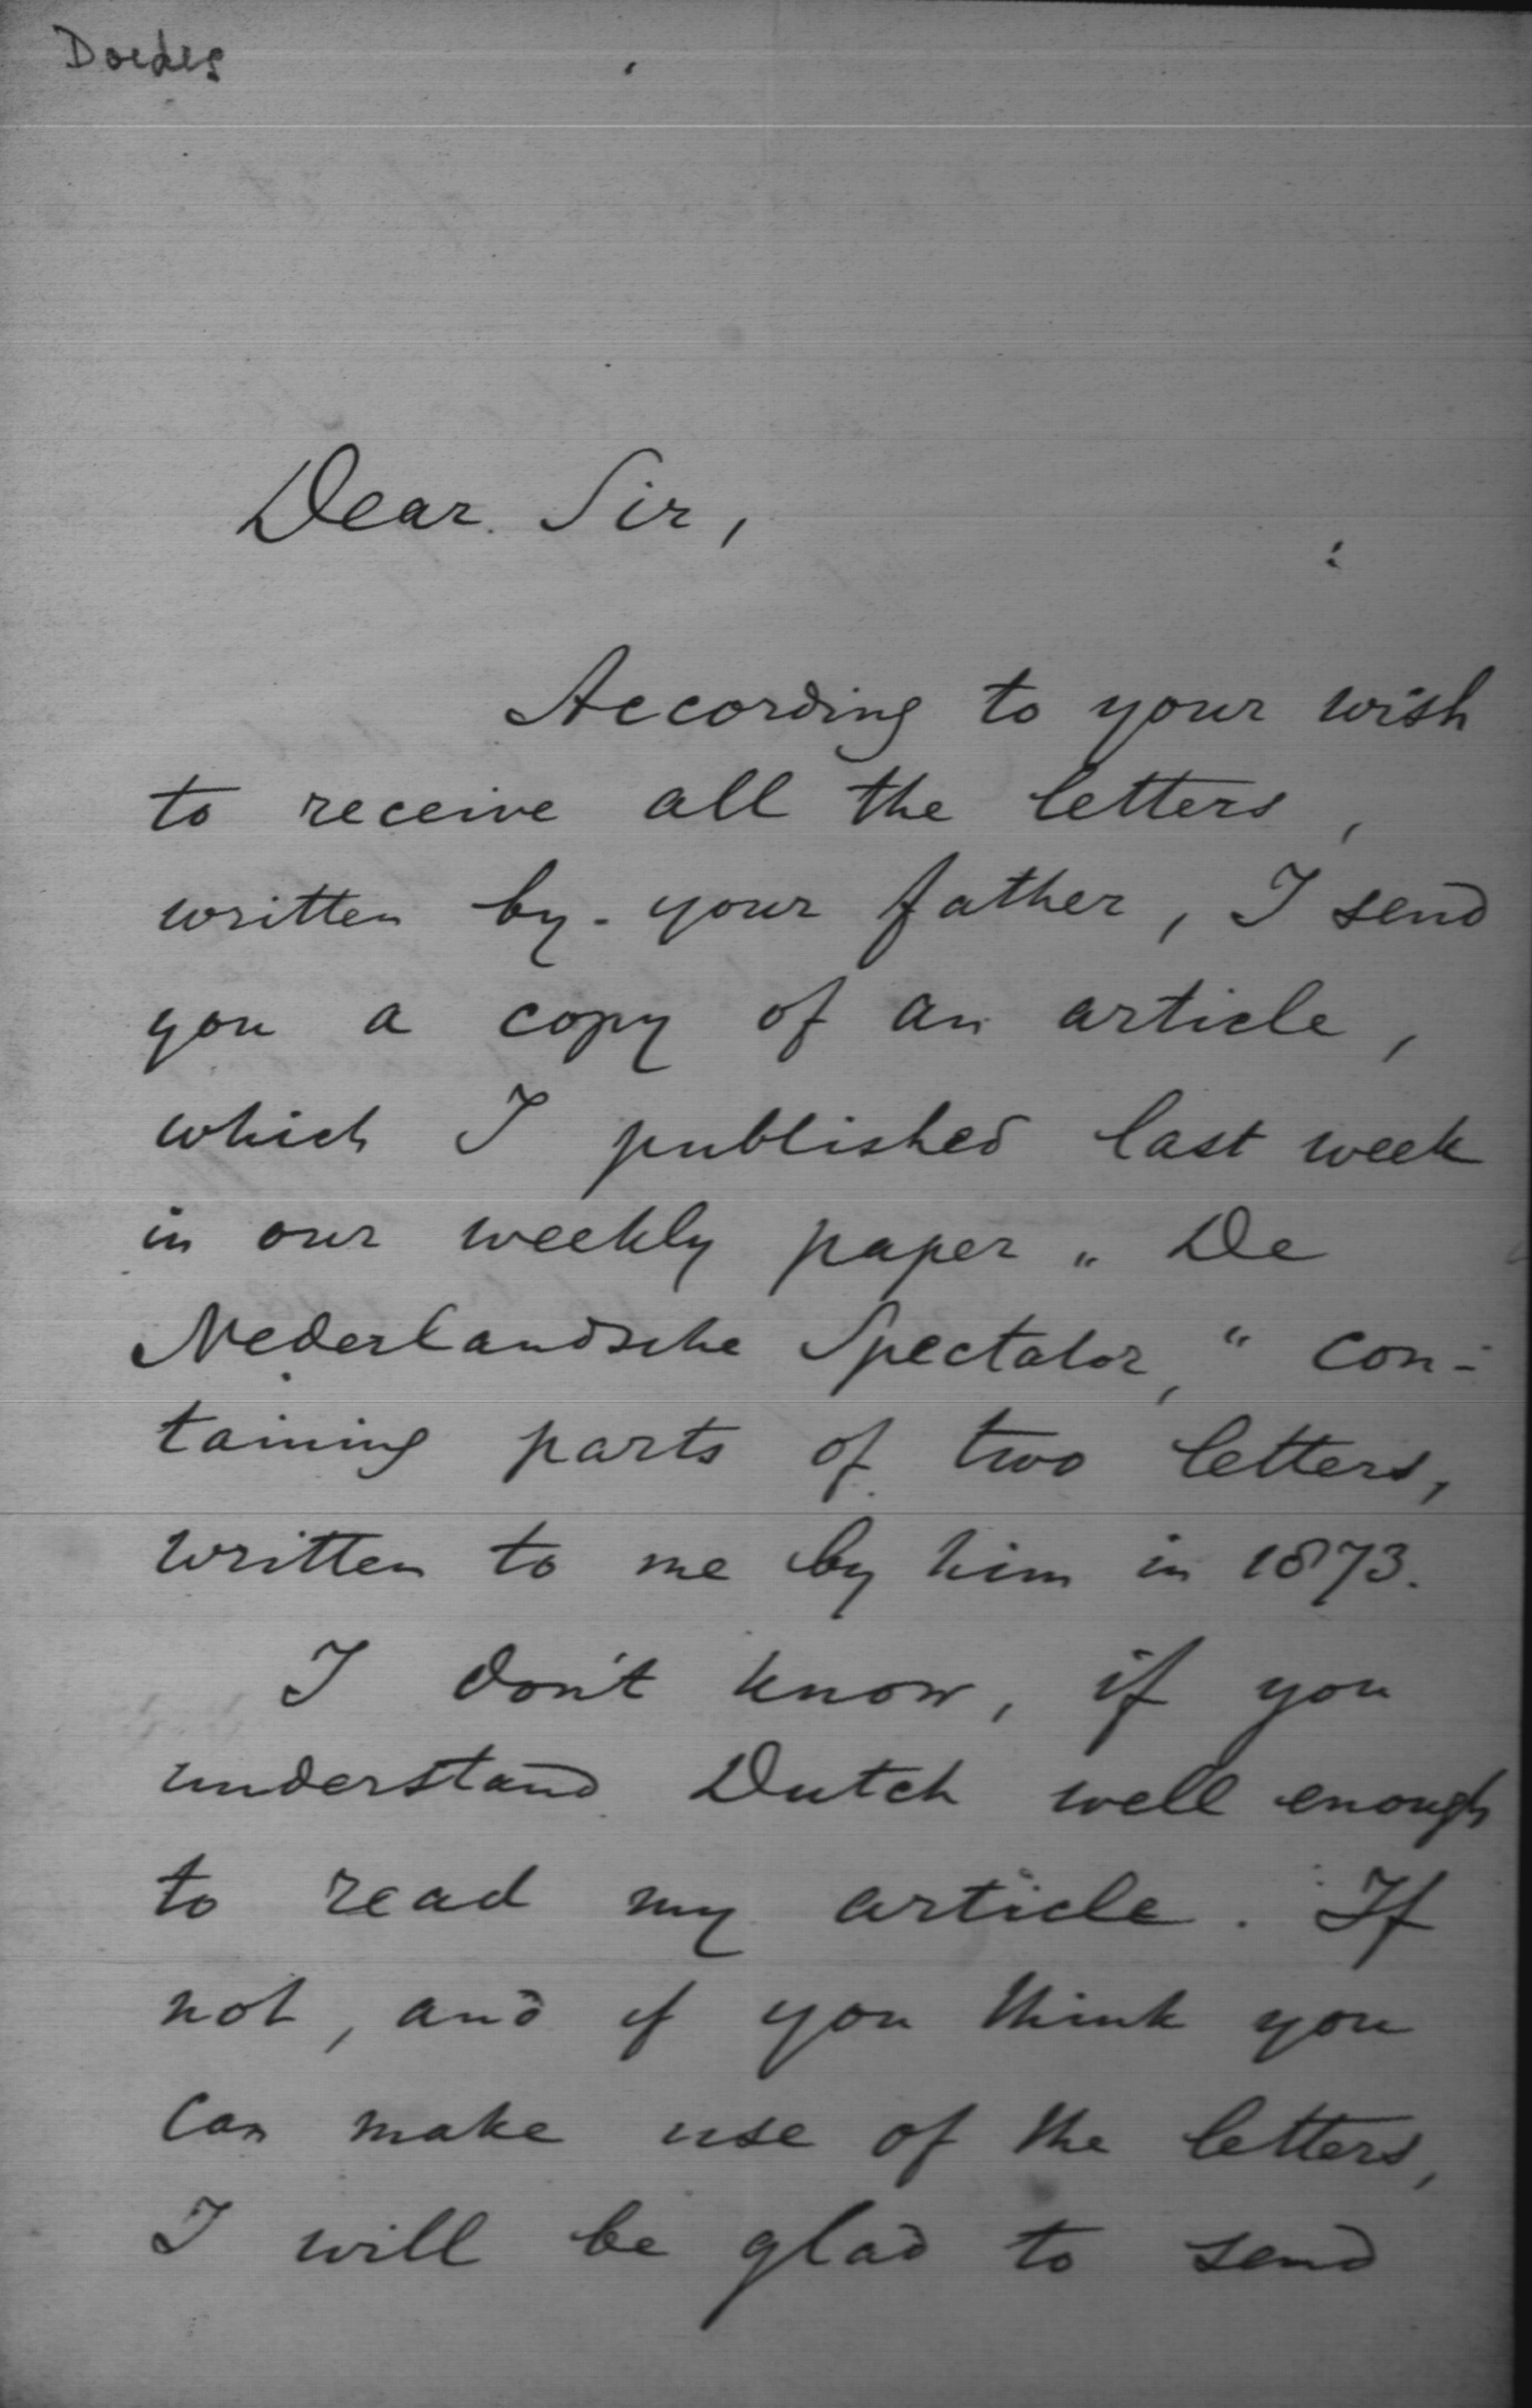 Doedes
Dear Sir,
According to your wish
to receive all the letters,
written by your father, I send
you a copy of an article,
which I published last week
in our weekly paper „De
Nederlandsche Spectator,“ con-
taining parts of two letters,
written to me by him in 1873.
I don't know, if you
understand Dutch well enough
to read my article. If
not, and if you think you
can make use of the letters,
I will be glad to send